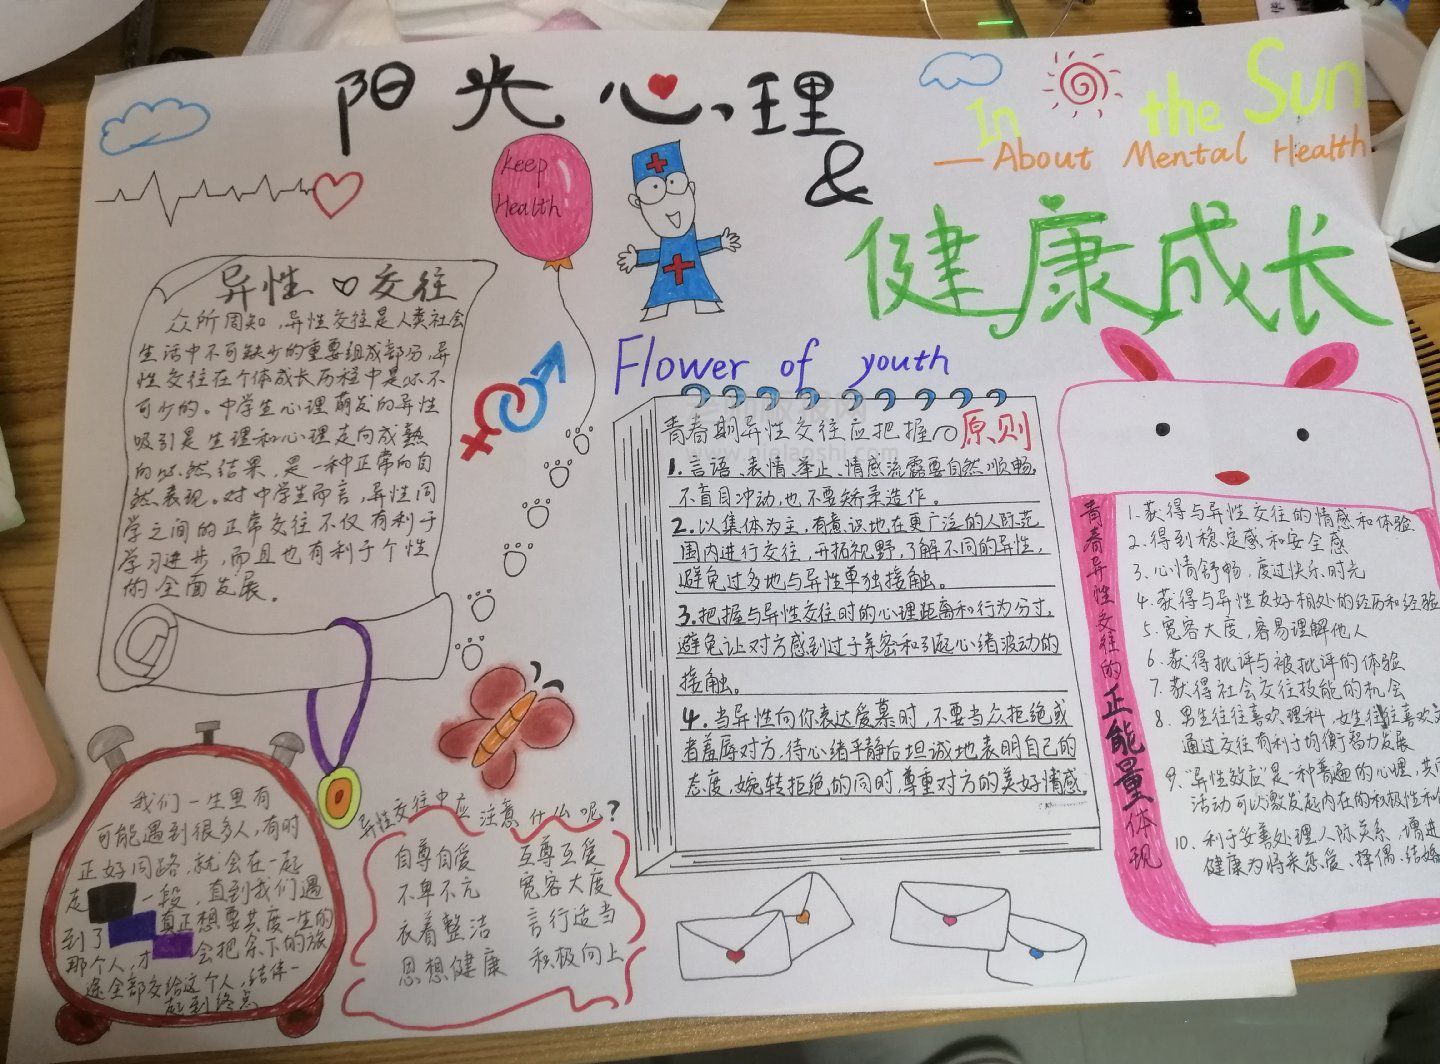 阳光心理
&
In the Sun
—About Mental Health
健康成长
keep
Health
异性 交往
众所周知,异性交往是人类社会
生活中不可缺少的重要组成部分,异
性交往在个体成长历程中是必不
可少的。中学生心理萌发的异性
吸引是生理和心理走向成熟
的必然结果,是一种正常的自
然表现。对中学生而言,异性同
学之间的正常交往不仅有利于
学习进步,而且也有利于个性
的全面发展。
Flower of youth
青春期异性交往应把握 原则
1.言语、表情、举止、情感流露要自然顺畅,
不盲目冲动,也不要矫柔造作。
2.以集体为主,有意识地在更广泛的人际范
围内进行交往,开拓视野,了解不同的异性,
避免过多地与异性单独接触。
3.把握与异性交往时的心理距离和行为分寸,
避免让对方感到过于亲密和引起心绪波动的
接触。
4.当异性向你表达爱慕时,不要当众拒绝或
者羞辱对方,待心绪平静后坦诚地表明自己的
态度,婉转拒绝的同时,尊重对方的美好情感。
青春异性交往的正能量体现
1.获得与异性交往的情感和体验
2.得到稳定感和安全感
3.心情舒畅,度过快乐时光
4.获得与异性友好相处的经历和经验
5.宽容大度,容易理解他人
6.获得批评与被批评的体验
7.获得社会交往技能的机会
8.男生往往喜欢理科,女生往往喜欢文
通过交往有利于均衡智力发展
9."异性效应"是一种普遍的心理,共同
活动可以激发起内在的积极性和
10.利于妥善处理人际关系,增进
健康为将来恋爱、择偶、结婚
我们一生里有
可能遇到很多人,有时
正好同路,就会在一起
走 一段,直到我们遇
到了 真正想要共度一生的
那个人,才 会把余下的旅
途全部交给这个人,结伴一
起到终点
异性交往中应注意什么呢?
自尊自爱 互尊互爱
不卑不亢 宽容大度
衣着整洁 言行适当
思想健康 积极向上